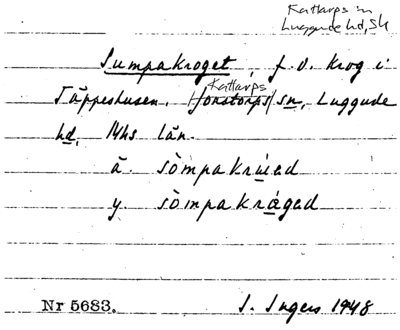 Kattarps sn
Luggude hd, Sk
Sumpakroget, f.d. krog i
Täppeshusen, Kattarps
Forstorps sn, Luggude
hd, Mhs län.
ä. sòmpakrúed
y. sòmpakrágad
Nr 5683. I. Ingers 1948